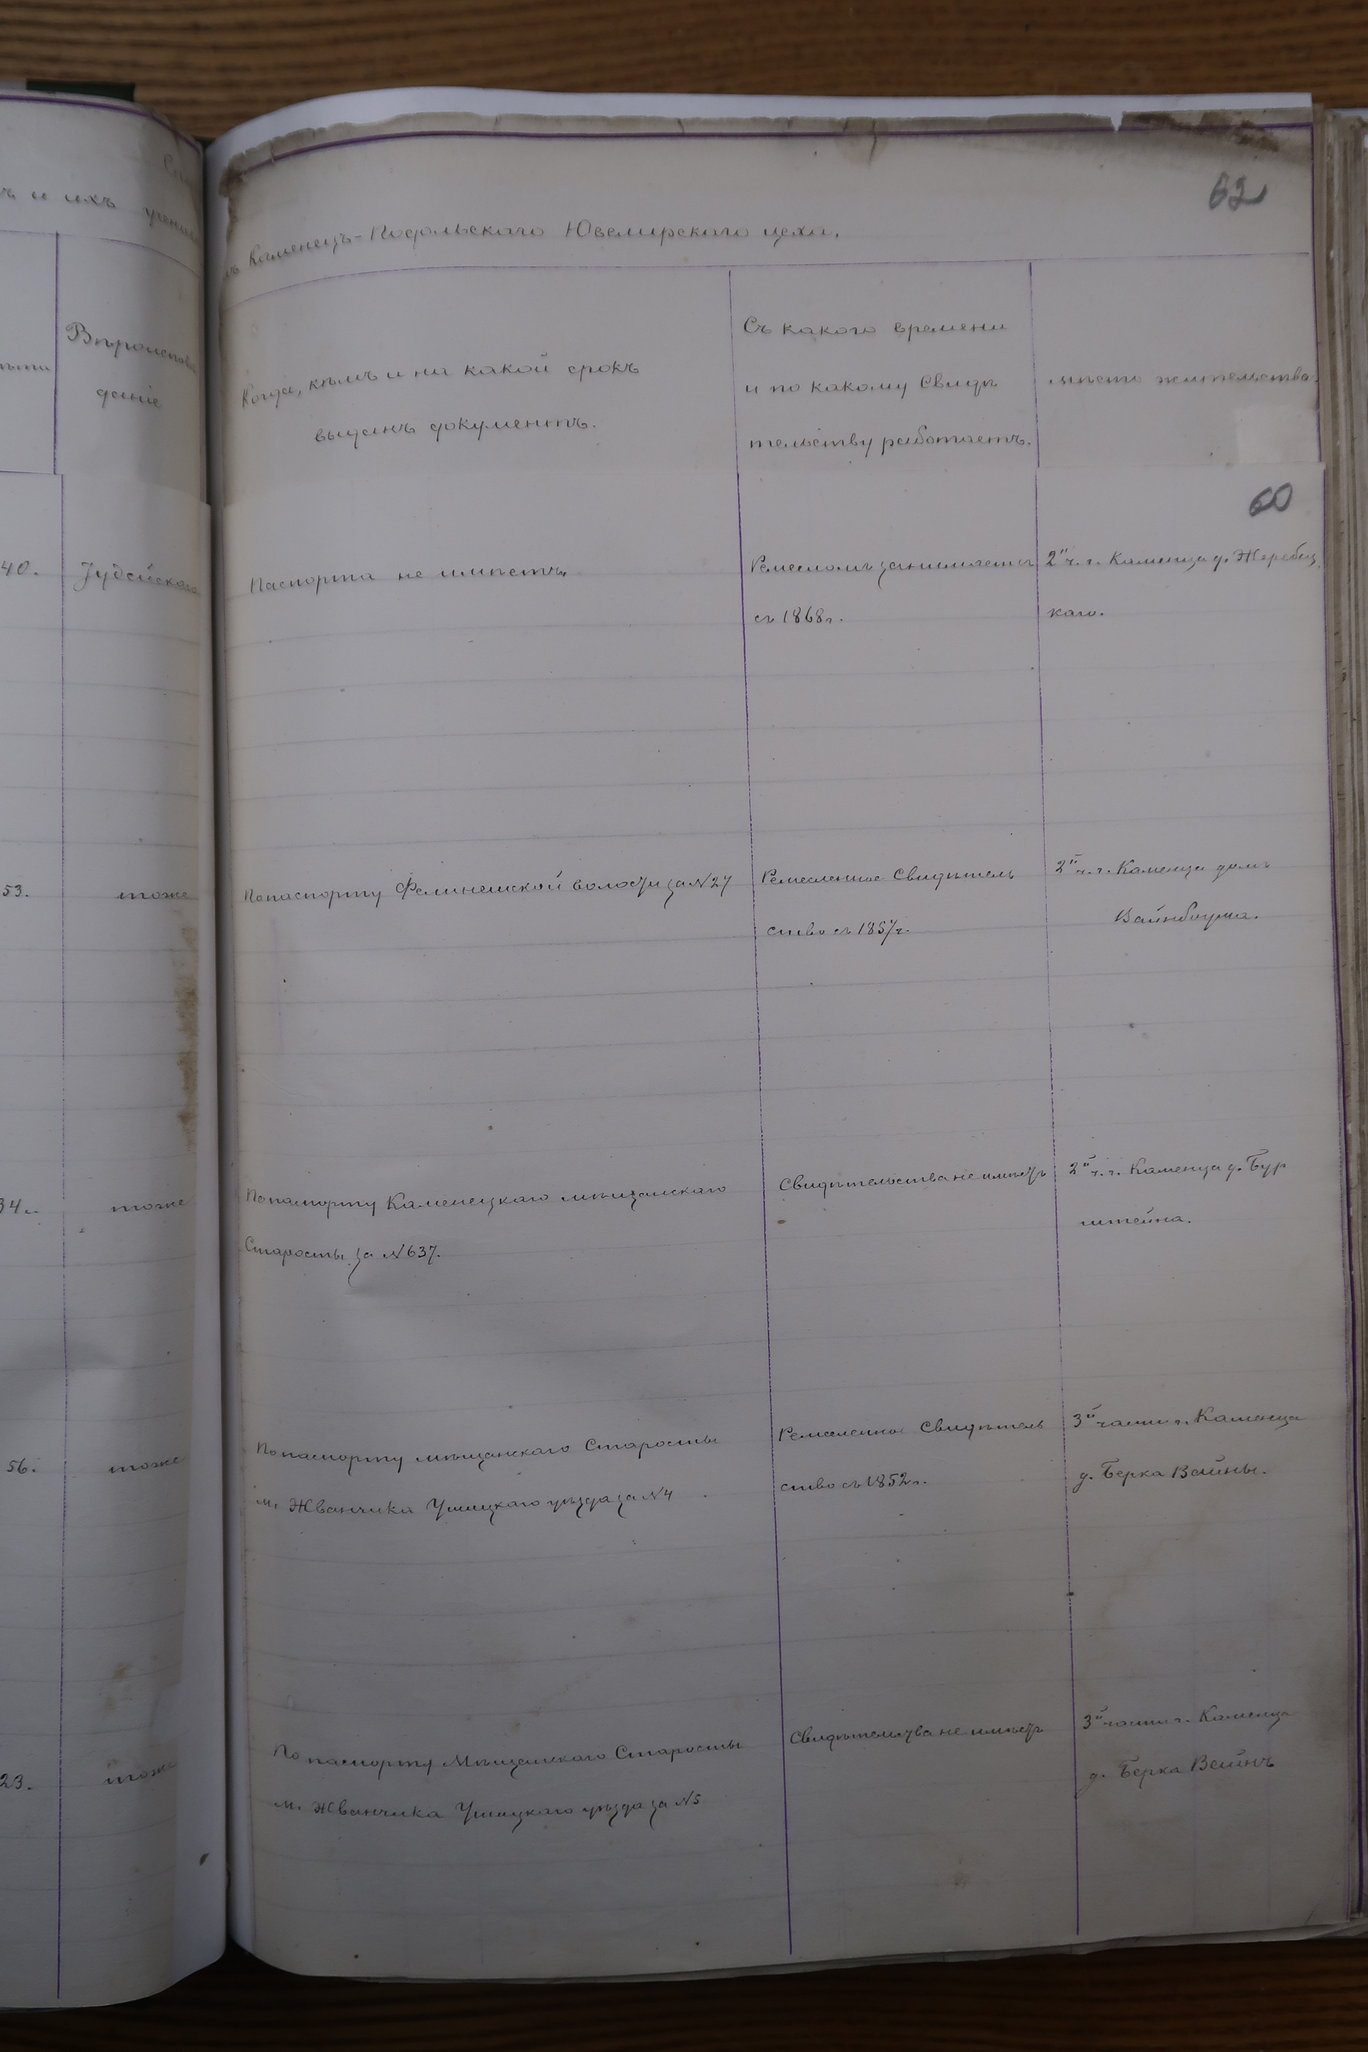 62
ъ и ихъ ученик
Каменецъ-Подольскаго Ювелирскаго цеха.
Вѣроисповѣ
даніе
Когда, кѣмъ и на какой срокъ
выданъ документъ.
Съ какого времени
и по какому Свидѣ
тельству работаетъ.
мѣсто жительства.
60
40. Іудейскаго
Паспорта не имѣетъ.
Ремесломъ занимается
съ 1868 г.
2й ч. г. Каменца д. Жеребец
каго.
53. тоже
По паспорту волости за №27
Ремесленное Свидѣтель
ство съ 1857 г.
2й ч. г. Каменца домъ
Вайнбаума.
34. тоже
По паспорту Каменецкаго мѣщанскаго
Старосты за №637.
Свидѣтельства не имѣетъ
2й ч. г. Каменца д. Бур
штейна.
56. тоже
По паспорту мѣщанскаго Старосты
м. Жванчика Ушицкаго уѣзда за №4
Ремесленное Свидѣтель
ство съ 1852 г.
3й части г. Каменца
д. Берка Вайны.
23. тоже
По паспорту Мѣщанскаго Старосты
м. Жванчика Ушицкаго уѣзда за №5
Свидѣтельства не имѣетъ
3й части г. Каменца
д. Берка Вайнъ